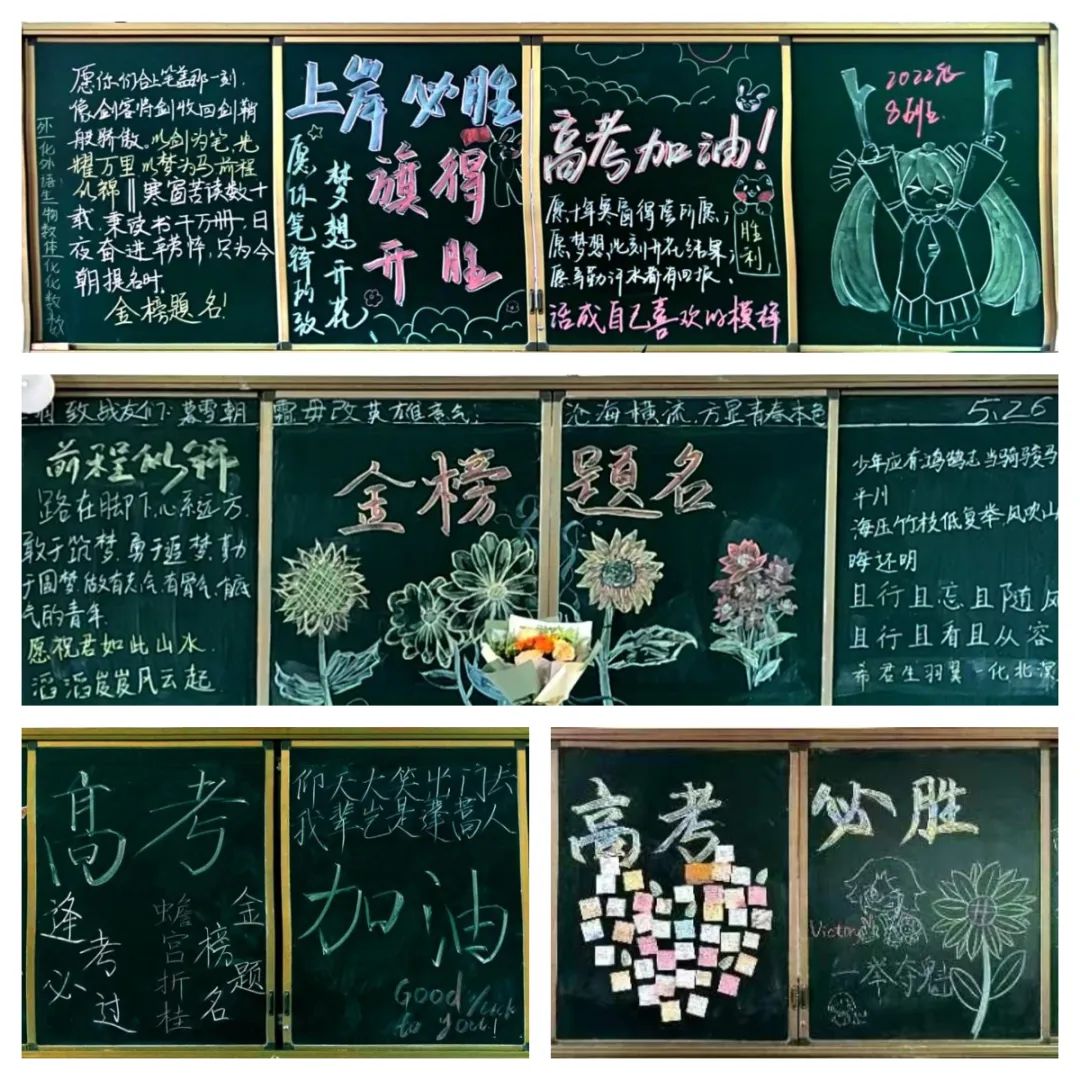 愿你们合上笔盖那一刻.
像剑客将剑收回剑鞘
般骄傲。以剑为笔,光
耀万里 以梦为马 前程
似锦 || 寒窗苦读数十
载,乘读书千万册,日
夜奋进 辛劳阵,只为今
朝提名时.
金榜題名!
上岸必胜
旗得
开胜
愿你笔锋所致
梦想开花
高考加油!
愿,十年寒窗得偿所愿;
愿,梦想,此刻开花结果;
愿辛勤汗水都有回报.
活成自己喜欢的模样
胜利
2022届
8班
致战友们: 暮雪朝霜毋改英雄意气;
沧海横流,方显青春本色
5.26
前程似锦
路在脚下,心系远方.
敢于筑梦,勇于追梦,勤
于圆梦,做有志气,有骨气,有底
气的青年.
愿祝君如此山水,
滔滔岌岌风云起.
金榜題名
少年应有鸿鹄志 当骑骏马
平川
海压竹枝低复举 风吹山
晦还明
且行且忘且随风
且行且看且从容
希君生羽翼 一化北溟
高考
逢考必过
蟾宫折桂
金榜题名
仰天大笑出门去
我辈岂是蓬蒿人
加油
Good luck
to you!
高考
必胜
Victory
一举夺魁